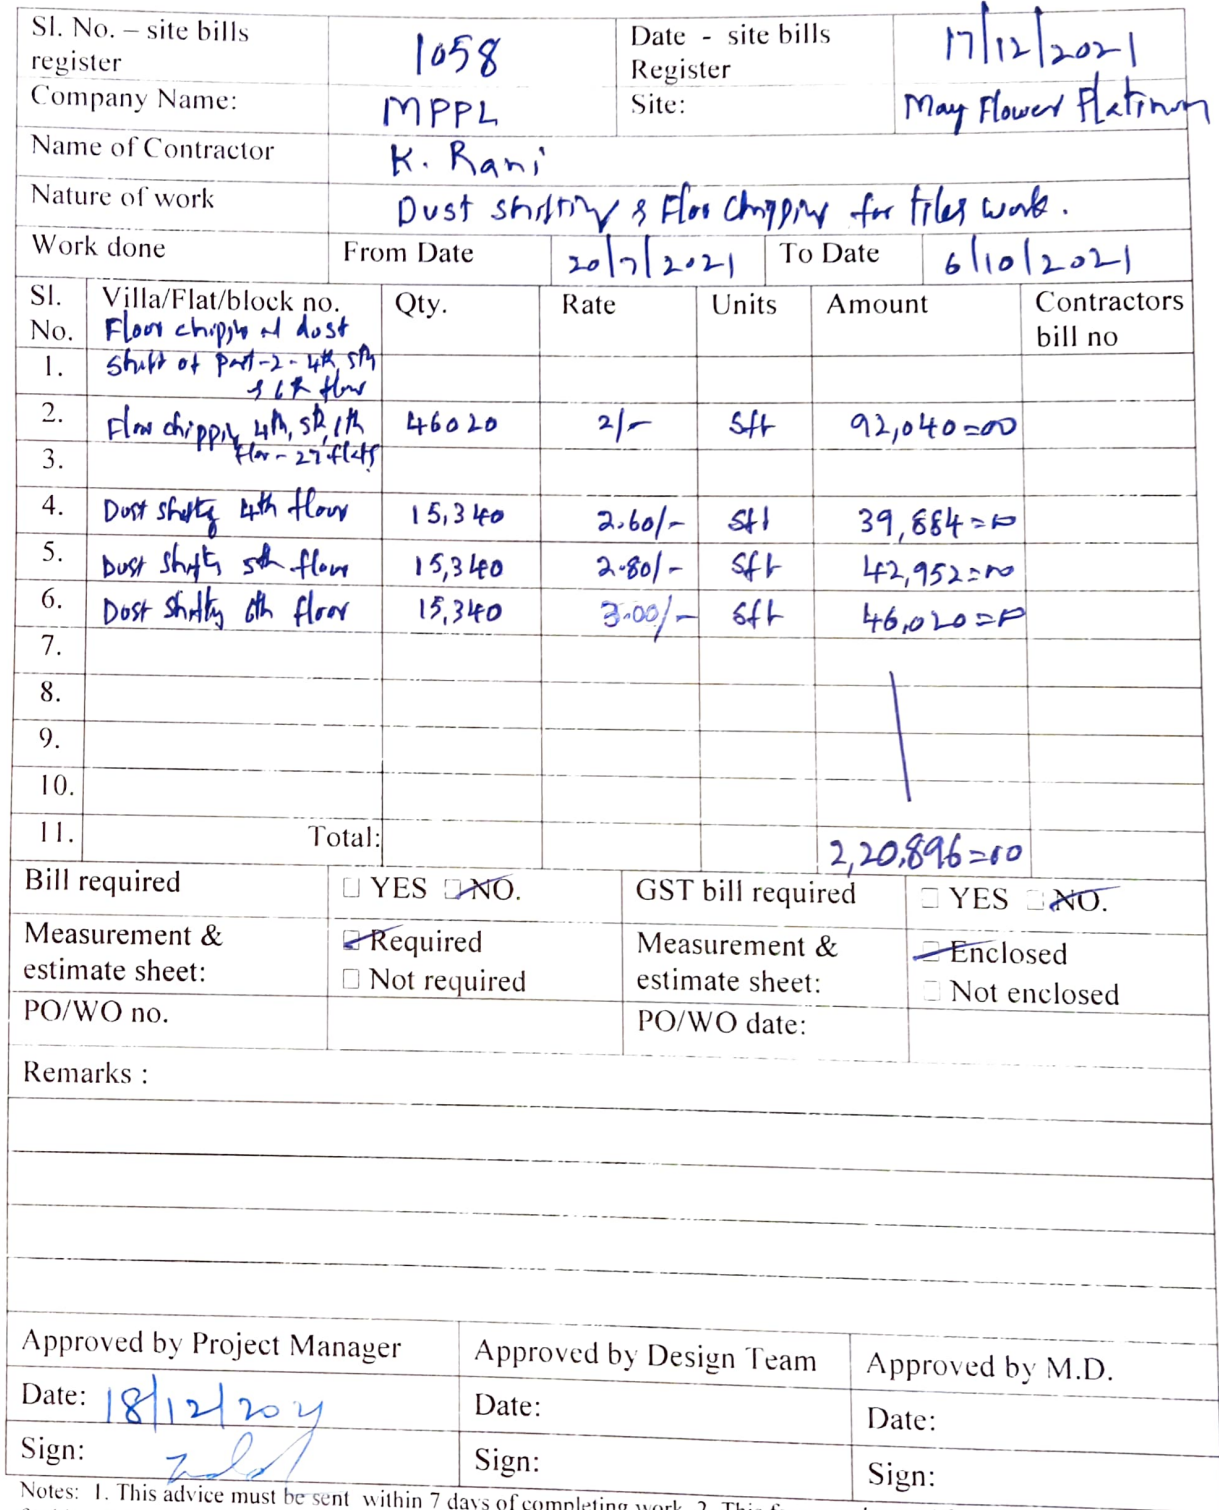 Sl. No. – site bills register 1058 Date - site bills Register 17/12/2021
Company Name: MPPL Site: May Flower Platinum
Name of Contractor K. Rani
Nature of work Dust shifting & Floor Chipping for tiles work.
Work done From Date 20/7/2021 To Date 6/10/2021
Sl. No. Villa/Flat/block no. Qty. Rate Units Amount Contractors bill no
Floor chipping and dust
1. Shift of part-2-4th, 5th
& 6th floor
2. Floor chipping 4th, 5th, 6th 46020 2/- sft 92,040=00
floor - 27 flats
3.
4. Dust shifting 4th floor 15,340 2.60/- sft 39,884=00
5. Dust shifting 5th floor 15,340 2.80/- sft 42,952=00
6. Dust shifting 6th floor 15,340 3.00/- sft 46,020=00
7.
8.
9.
10.
11. Total: 2,20,896=00
Bill required YES NO. GST bill required YES NO.
Measurement & estimate sheet: Required Measurement & estimate sheet: Enclosed
Not required Not enclosed
PO/WO no. PO/WO date:
Remarks :
Approved by Project Manager Approved by Design Team Approved by M.D.
Date: 18/12/2021 Date: Date:
Sign: Sign: Sign:
Notes: 1. This advice must be sent within 7 days of completing work. 2. This